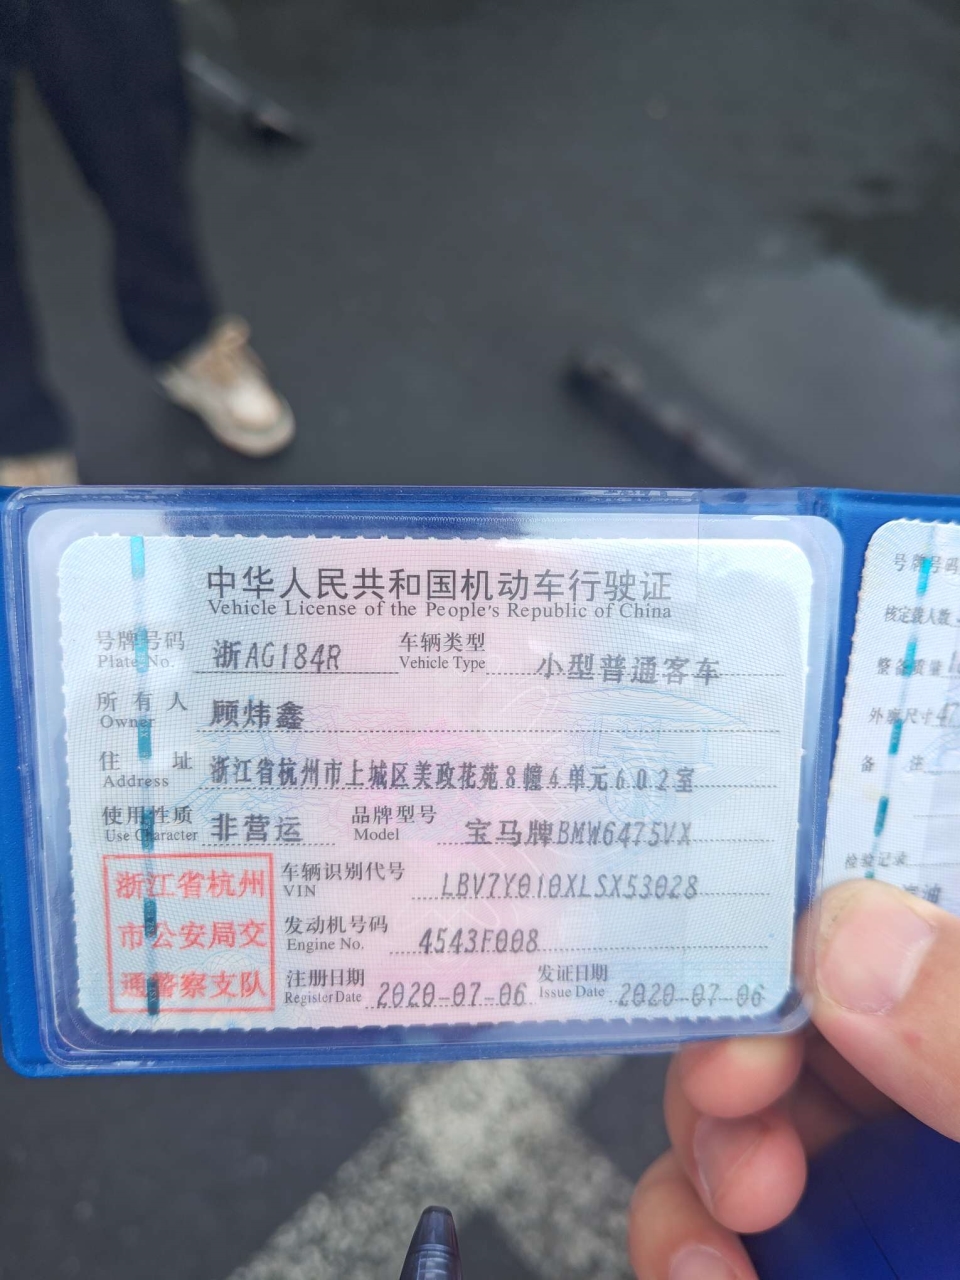 中华人民共和国机动车行驶证
Vehicle License of the People's Republic of China
号牌号码 浙AG184R 车辆类型 小型普通客车
Plate No. Vehicle Type
所有人 顾炜鑫
Owner
住址 浙江省杭州市上城区美政花苑8幢4单元602室
Address
使用性质 非营运 品牌型号 宝马牌BMW6475VX
Use Character Model
浙江省杭州
市公安局交
通警察支队
车辆识别代号 LBV7Y010XLSX53028
VIN
发动机号码 4543F008
Engine No.
注册日期 2020-07-06 发证日期 2020-07-06
Register Date Issue Date
号牌号码
核定载人数
整备质量
外廓尺寸 47
备注
检验记录